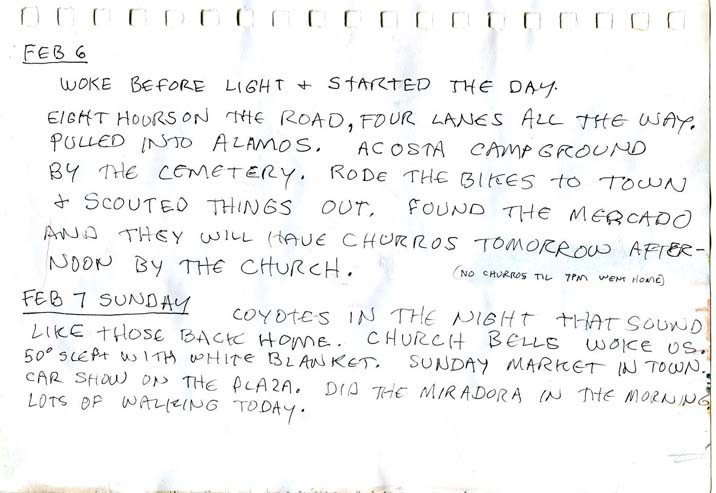 FEB 6
WOKE BEFORE LIGHT + STARTED THE DAY.
EIGHT HOURS ON THE ROAD, FOUR LANES ALL THE WAY.
PULLED INTO ALAMOS. ACOSTA CAMPGROUND
BY THE CEMETERY. RODE THE BIKES TO TOWN
+ SCOUTED THINGS OUT. FOUND THE MERCADO
AND THEY WILL HAVE CHURROS TOMORROW AFTER-
NOON BY THE CHURCH. (NO CHURROS TIL 7PM WENT HOME)
FEB 7 SUNDAY COYOTES IN THE NIGHT THAT SOUND
LIKE THOSE BACK HOME. CHURCH BELLS WOKE US.
50° SLEPT WITH WHITE BLANKET. SUNDAY MARKET IN TOWN.
CAR SHOW ON THE PLAZA. DID THE MIRADORA IN THE MORNING
LOTS OF WALKING TODAY.